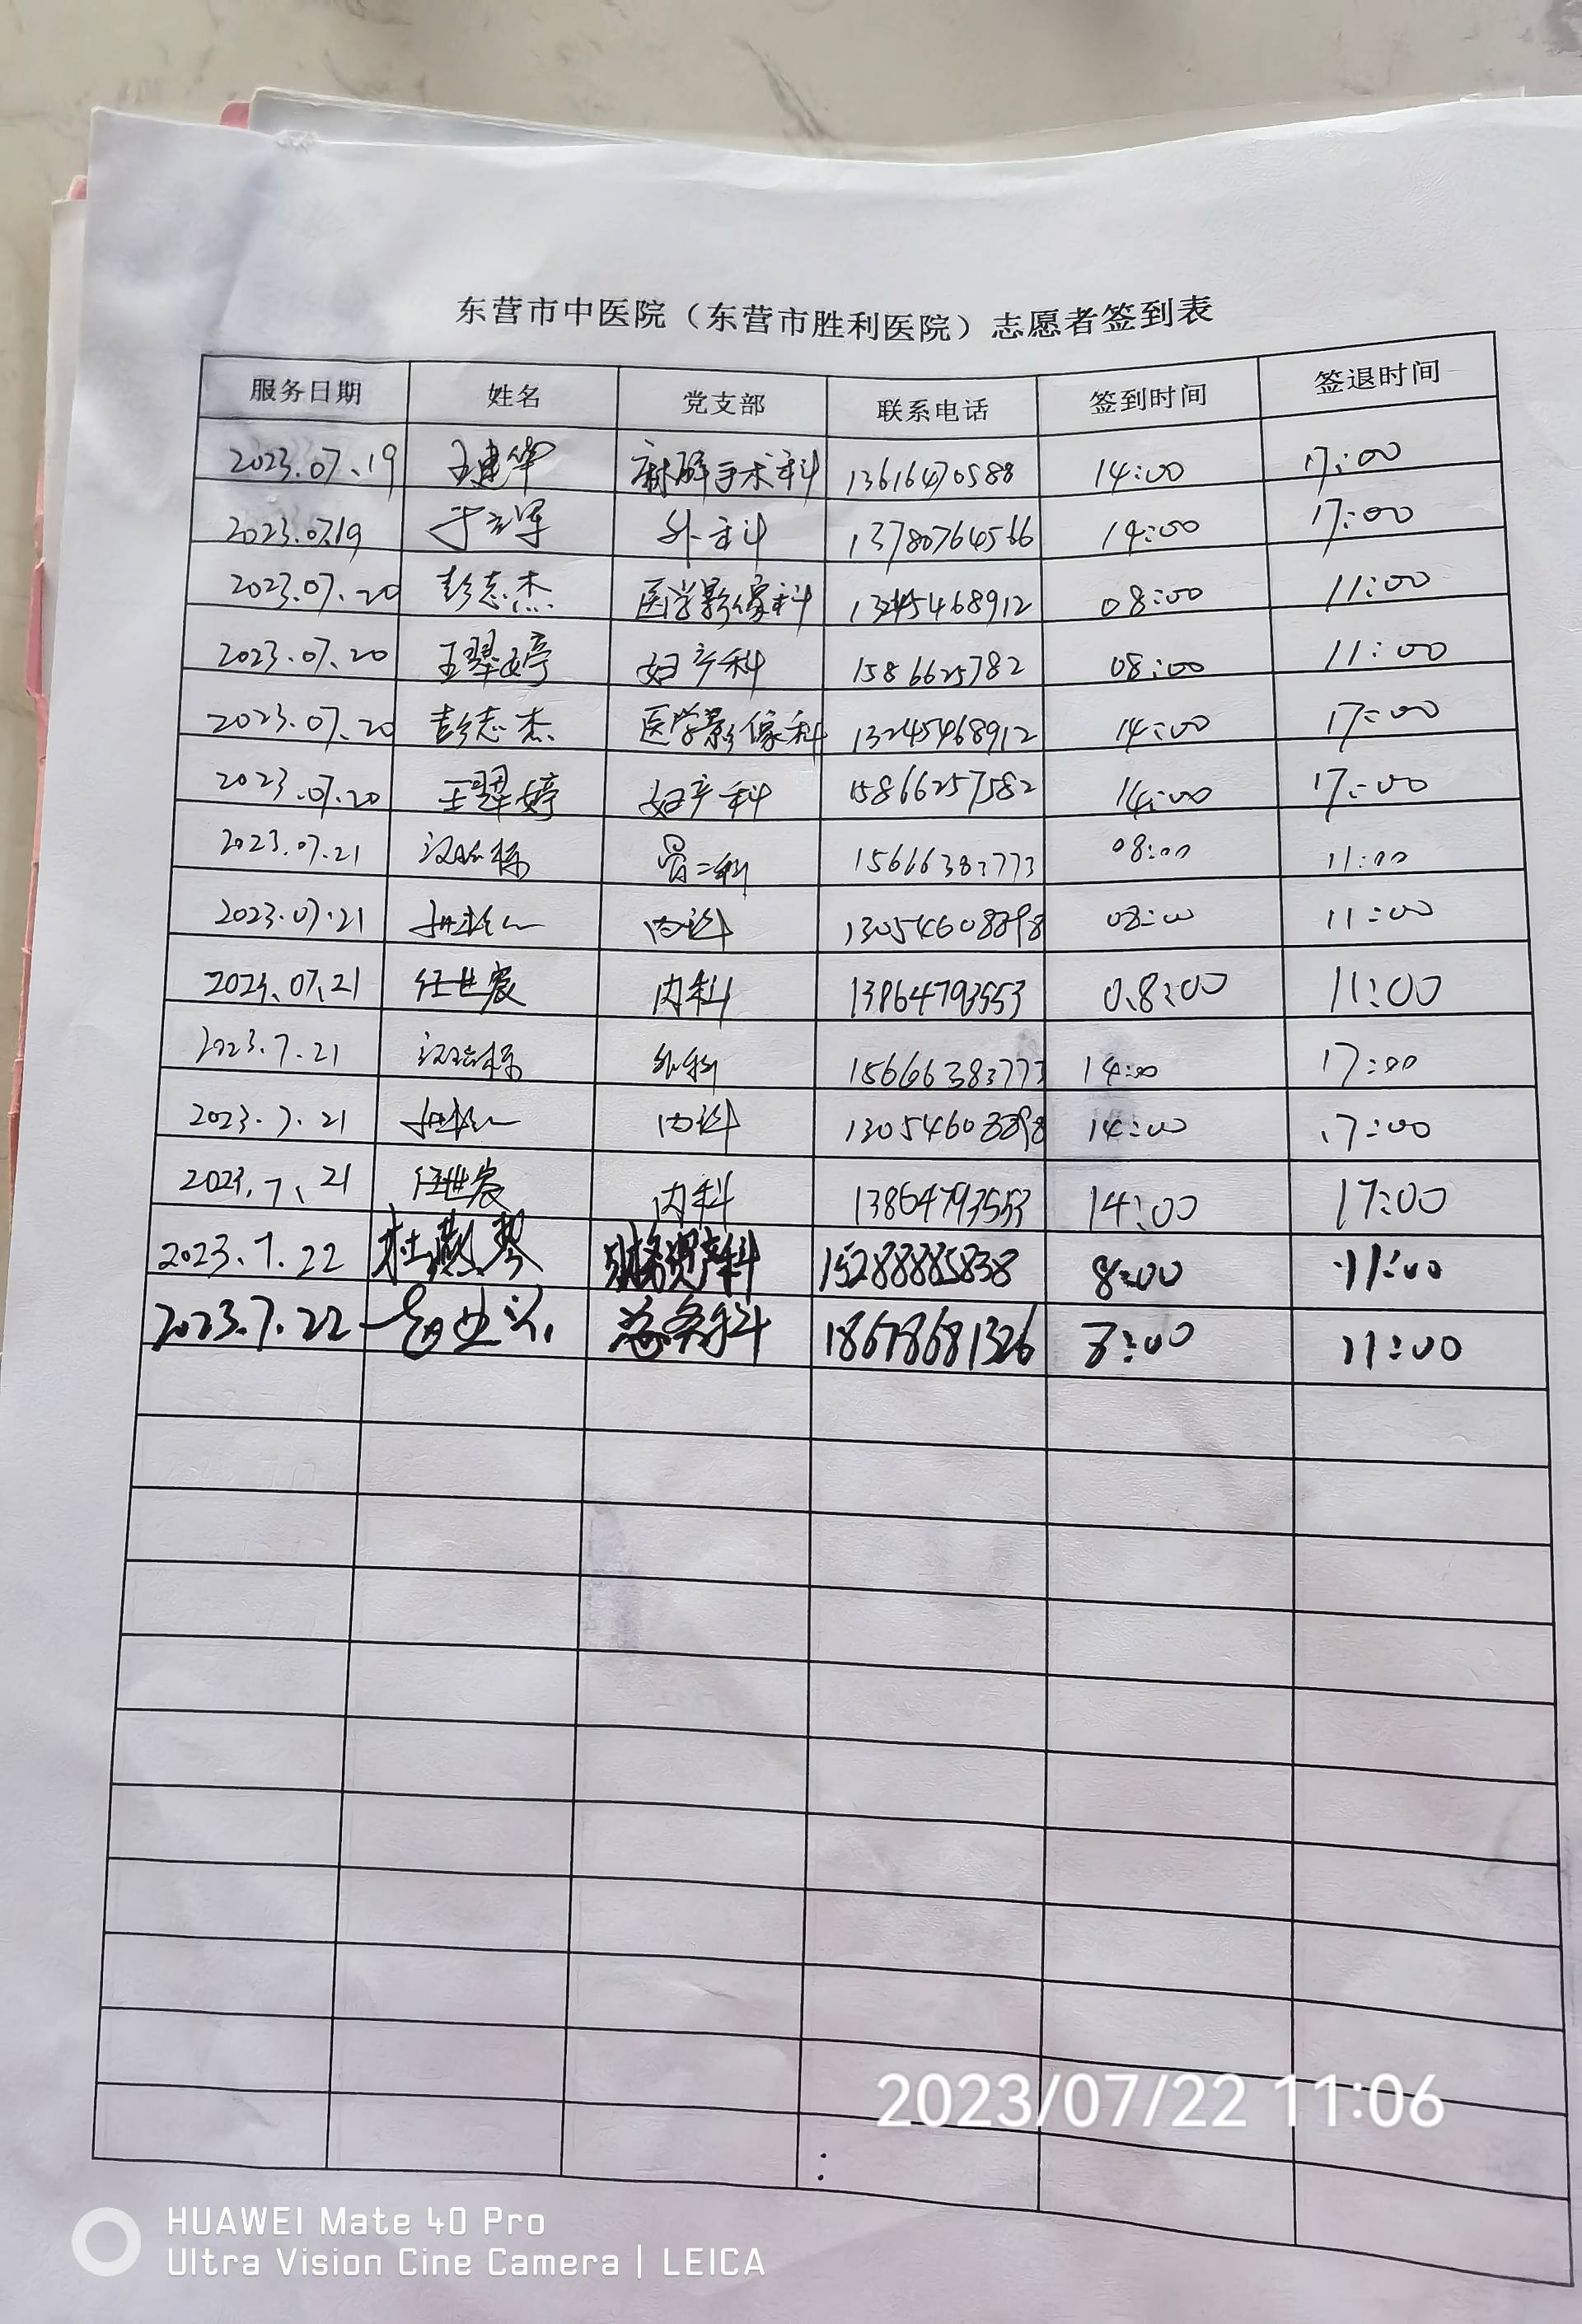 东营市中医院（东营市胜利医院）志愿者签到表
服务日期 姓名 党支部 联系电话 签到时间 签退时间
2023.07.19 王建华 麻醉手术科 13616470588 14:00 17:00
2023.07.19 于立军 外科 13780764566 14:00 17:00
2023.07.20 彭志杰 医学影像科 13245468912 08:00 11:00
2023.07.20 王翠婷 妇产科 1586625782 08:00 11:00
2023.07.20 彭志杰 医学影像科 13245468912 14:00 17:00
2023.07.20 王翠婷 妇产科 15866257582 14:00 17:00
2023.07.21 骨二科 15666383773 08:00 11:00
2023.07.21 内科 08:00 11:00
2023.07.21 任世宸 内科 13864793553 08:00 11:00
2023.7.21 外科 15666383773 14:00 17:00
2023.7.21 内科 14:00 17:00
2023.7.21 任世宸 内科 13864793553 14:00 17:00
2023.7.22 杜燕琴 财务资产科 15288885838 8:00 11:00
2023.7.22 总务科 18678681326 8:00 11:00
2023/07/22 11:06
HUAWEI Mate 40 Pro
Ultra Vision Cine Camera | LEICA